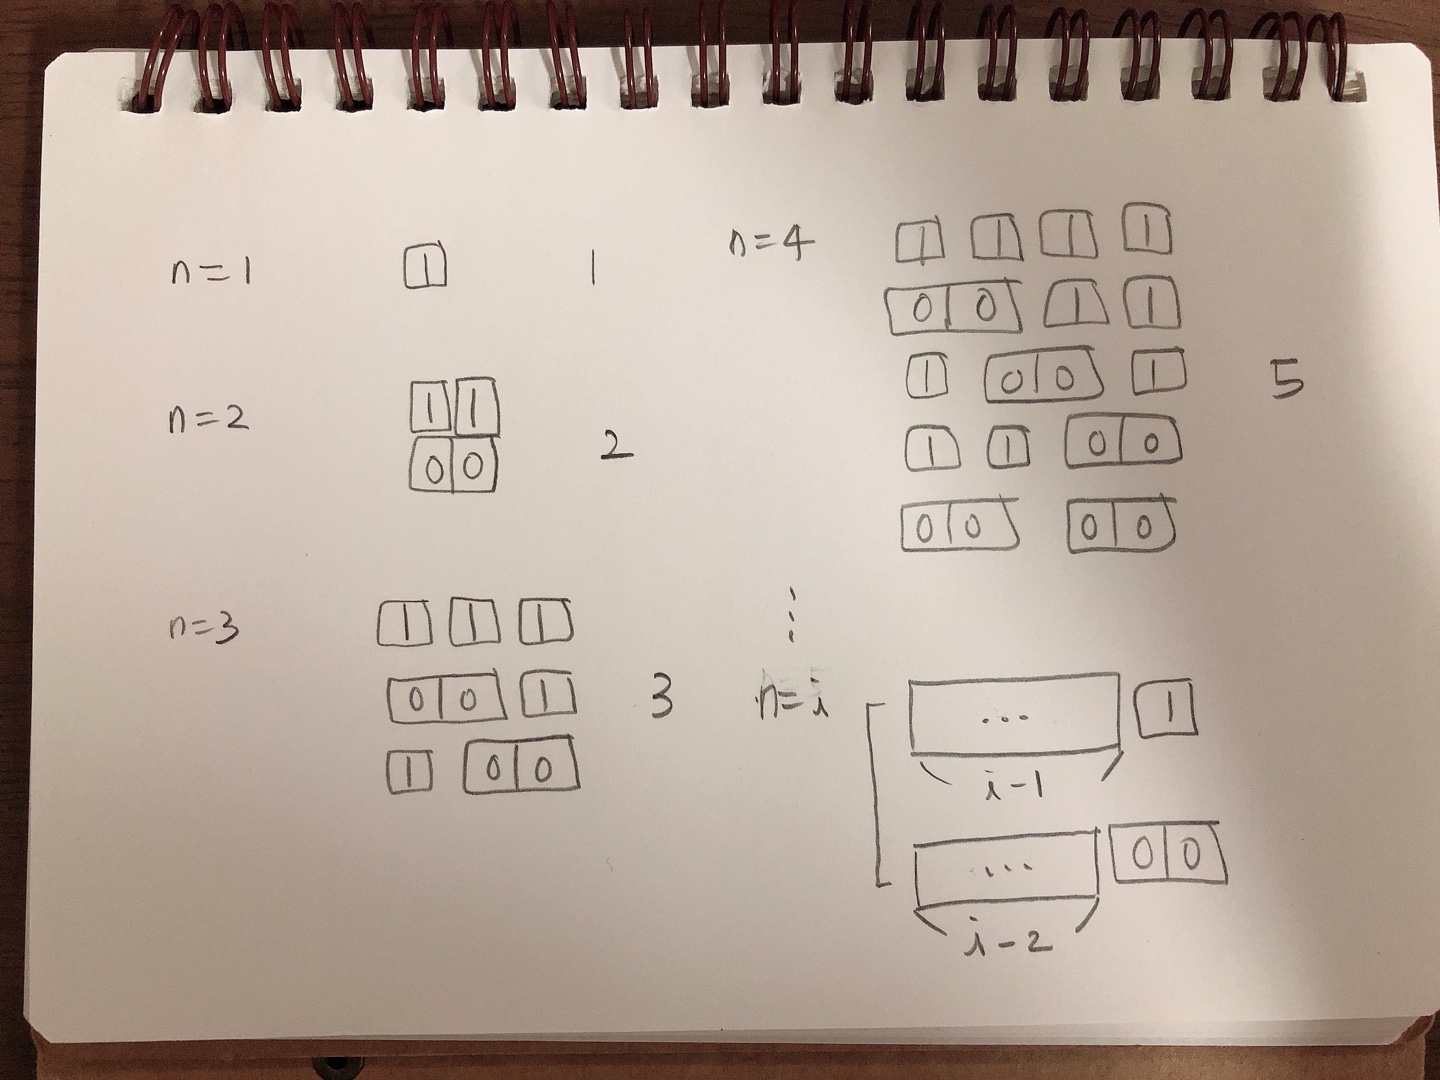 n=1 1 1
n=2 1 1
0 0 2
n=3 1 1 1
0 0 1 3
1 0 0
n=4 1 1 1 1
0 0 1 1
1 0 0 1 5
1 1 0 0
0 0 0 0
⋮
n=i ... 1
i-1
... 0 0
i-2